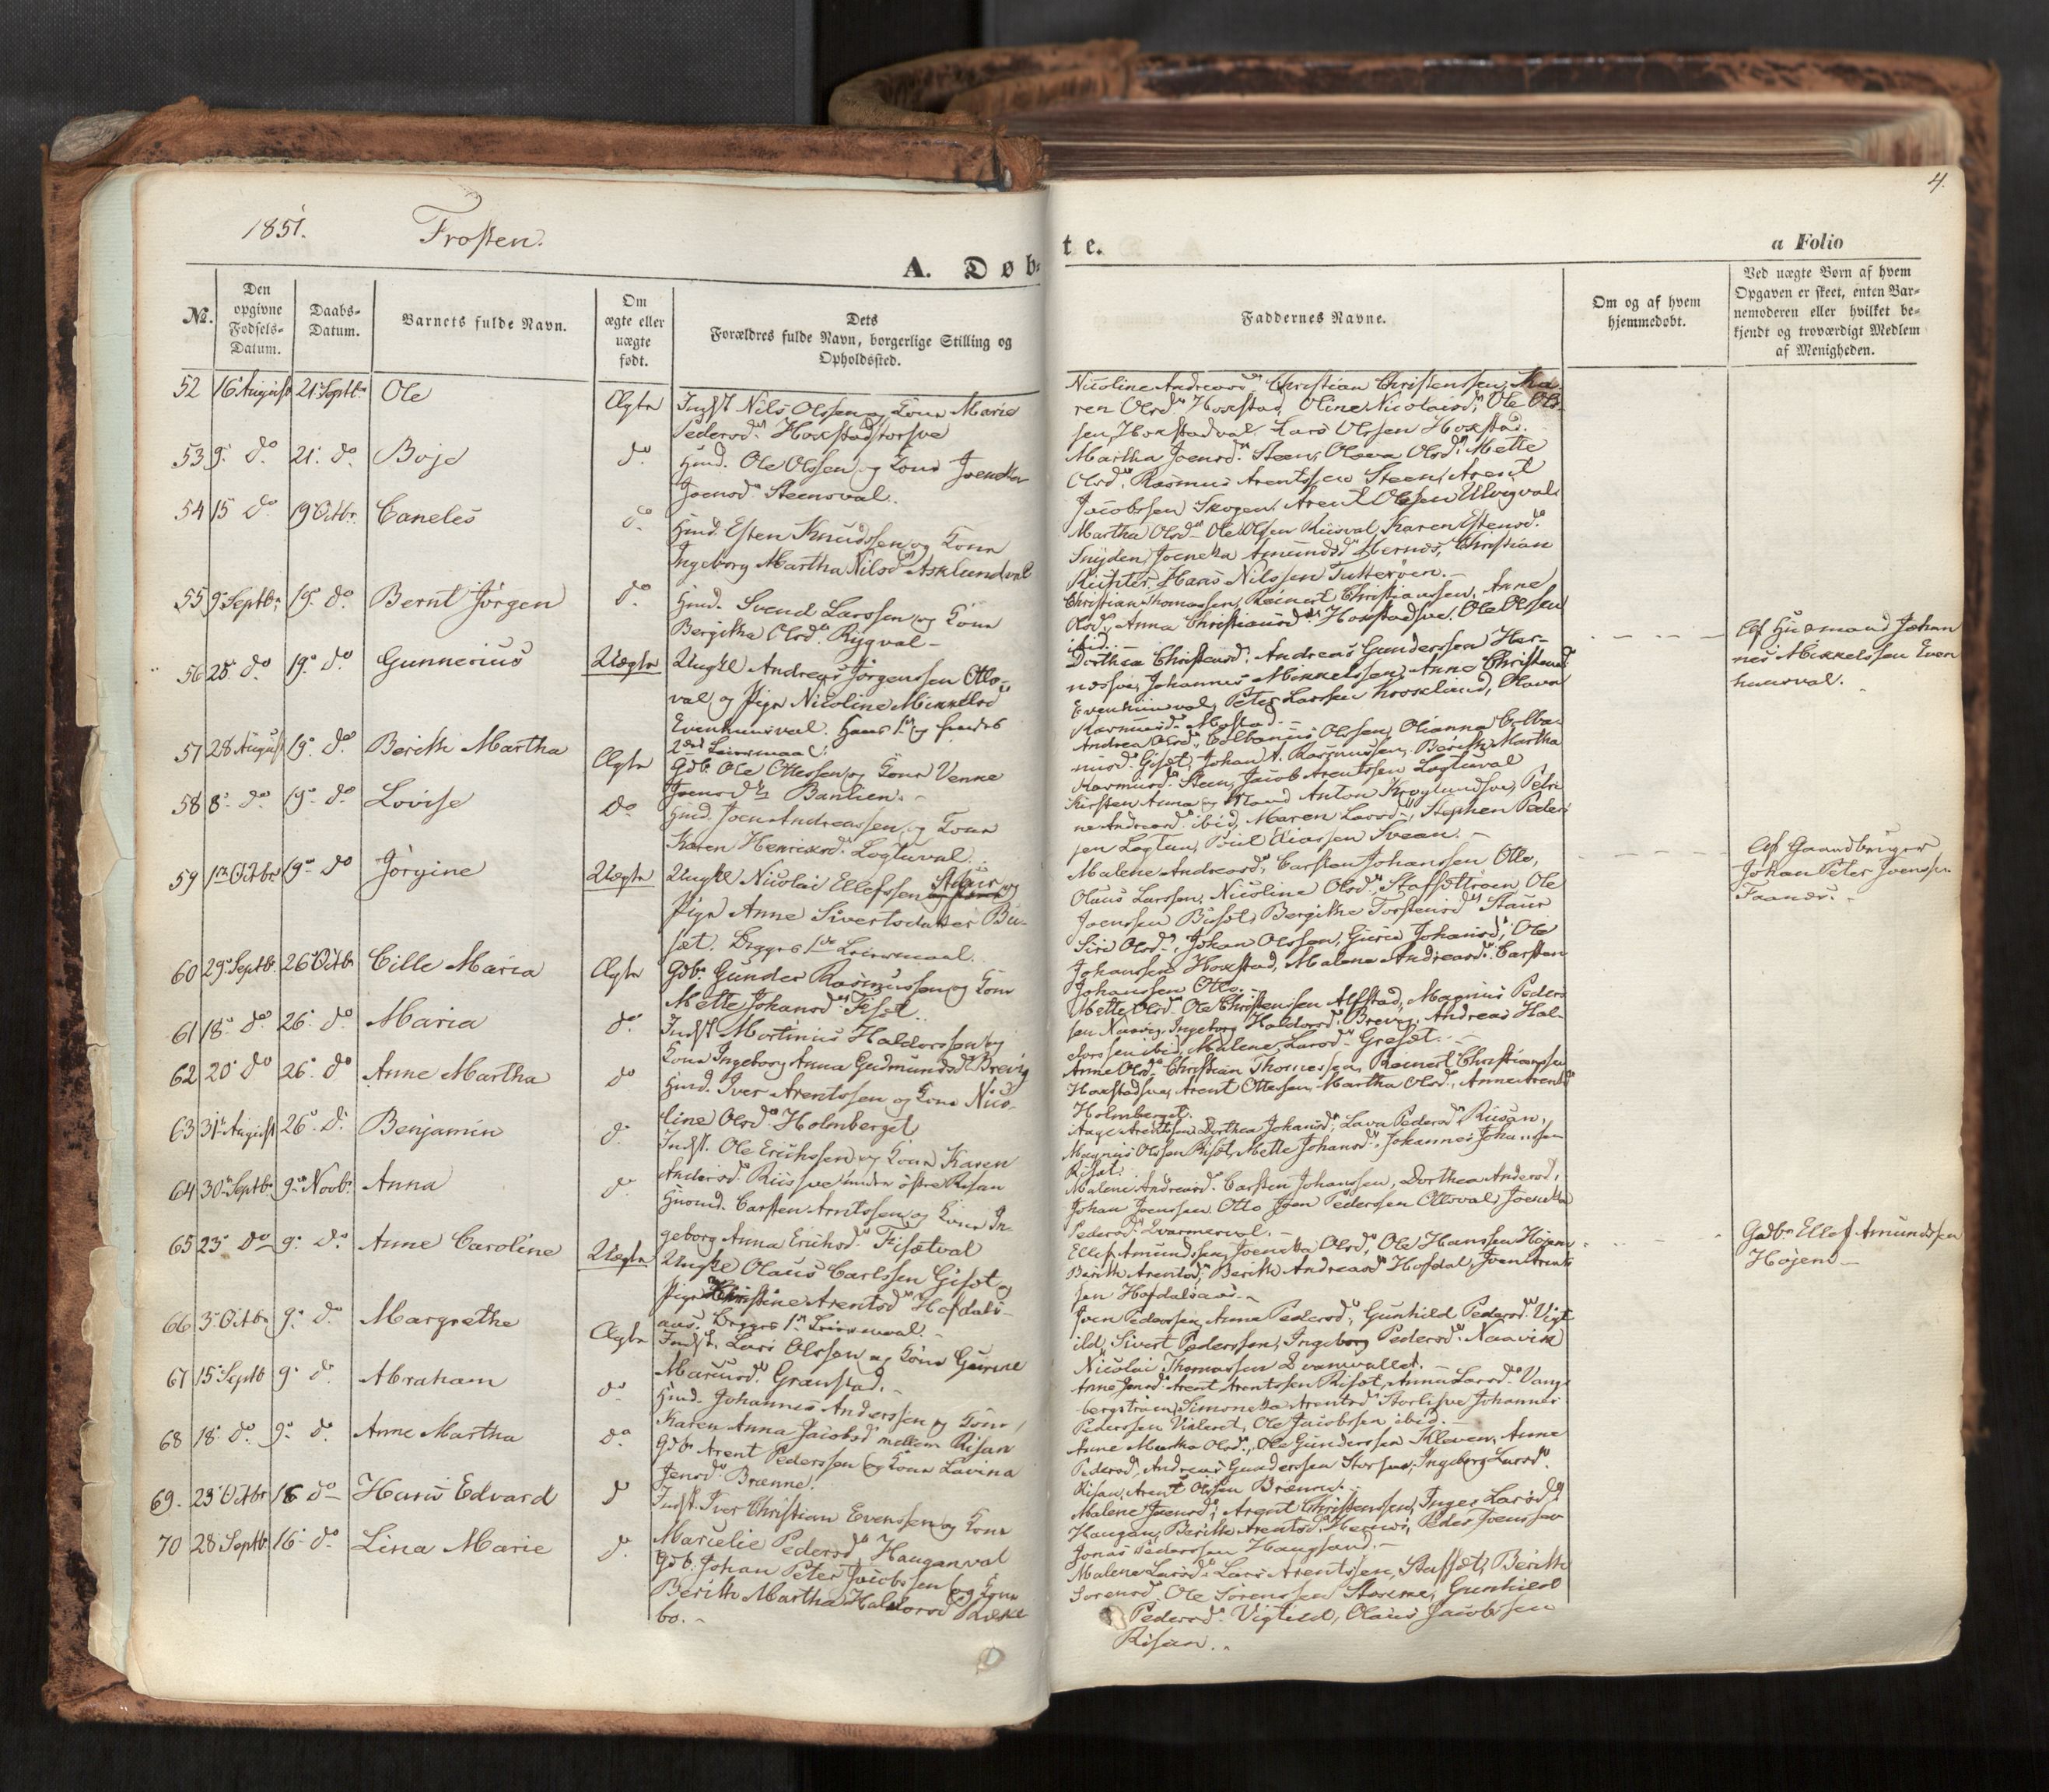 4.
1851.
Frosten.
A. Døb-
te.
a Folio
№.
Den
opgivne
Fødsels-
Datum.
Daabs-
Datum.
Barnets fulde Navn.
Om
ægte eller
uægte
født.
Dets
Forældres fulde Navn, borgerlige Stilling og
Opholdssted.
Faddernes Navne.
Om og af hvem
hjemmedøbt.
Ved uægte Børn af hvem
Opgaven er skeet, enten Bar-
nemoderen eller hvilket be-
kjendt og troværdigt Medlem
af Menigheden.
52 16 August 21 Septbr. Ole Ægte
Indst Nils Olssen og Kone Marie
Pedersd. Hoxstad
Nicoline Andreasd. Christian Christenssen, Ka-
ren Olsd. Hoxstad, Oline Nicolaisd., Ole Ols-
sen, Hoxstadval, Lars Olssen Hoxstad.
53 9. do. 21. do. Boje do.
Husd. Ole Olssen og Kone Joeneka
Joensd. Steensval.
Martha Joensd. Steen, Olava Olsd., Mette
Olsd., Rasmus Arentssen Steen, Arent
Jacobssen Skogen, Arent Olssen Ulvigval
54 15 do. 19 Octbr. Caneles do.
Husd. Esten Knudssen og Kone
Ingeborg Martha Nilsd. Asklundval
Martha Olsd. Ole Olssen Riisval, Karen Estensd.
Joeneka Amundsd. Hernes, Christian
Richter, Hans Nilssen Tutterøen.
55 9 Septbr. 19. do. Bernt Jørgen do.
Husd. Svend Larssen og Kone
Bergitha Olsd. Rygval
Christian Thomassen, Reinert Christianssen, Anne
Olsd., Anna Christiansd. Hoxstadsve, Ole Olssen
ibid.
56 25. do. 19. do. Gunnerius Uægte
Ungkl Andreas Jørgenssen Otlo-
val, og Pige Nicoline Mikkelsd.
Evenhuusval. Hans 1ste og hendes
2det Leiermaal.
Dorthea Christensd. Andreas Gunderssen Her-
nessve, Johannes Mikkelssen, Anne Christensd.
Evenhuusval, Peter Larssen Lorsklund, Olava
Rasmusd. Mostad.
Af Husmand Johan
nes Mikkelssen Even
huusval.
57 28 August 19. do. Berith Martha Ægte
Gdb. Ole Ottessen og Kone Venne
Joensd. Banlien.
Andrea Olsd., Colbanus Olssen, Olianna Colba-
nusd. Gisæt, Johan A. Rasmussen, Berith Martha
Rasmusd. Steen, Jacob Arentssen Logtuval
58 8. do. 19. do. Lovise do.
Husd. Joen Andreassen og Kone
Karen Henriksd. Logtuval.
Kirsten Anna og Mand Anton Kroglundsve, Petri
ne Andreasd. ibid, Maren Larsd., Stephen Peders-
sen Logtun, Poul Eliassen Svean.
59 1ste Octbr 19. do Jørgine Uægte
Ungkl Nicolai Ellefssen Staur og
Pige Anne Sivertsdatter Bu-
sæt. Begges 1ste Leiermaal.
Malene Andreasd., Carsten Johanssen Otlo,
Olaus Larssen, Nicoline Olsd. Stafsættrøen, Ole
Joenssen Busæt, Bergithe Torstensd. Staur
Af Gaardbruger
Johan Peter Joenssen
Faanes.
60 29 Septbr 26 Octbr Cille Maria Ægte
Gdbr Gunder Rasmussen og Kone
Mette Johansd. Fisæt.
Siri Olsd., Johan Olssen, Guria Johansd., Ole
Johanssen Hoxstad, Malena Andreasd. Carsten
Johanssen Otlo.
61 18. do. 26. do. Maria do.
Indst Mortinus Haldorssen og
Kone Ingeborg Anna Gudmundsd. Brevig
Mette Olsd. Ole Christenssen Alfstad, Magnus Peders
sen Naavig, Ingeborg Haldorsd. Brevig, Andreas Hal-
dorssen ibid, Malene Larsd. Gresæt.
62 20. do 26. do. Anne Martha do
Husd. Iver Arentssen og Kone Nico-
line Olsd. Holmberget
Anne Olsd. Christian Thomassen, Reinert Christianssen
Hoxstadsve, Arent Ottessen, Martha Olsd., Anne Arentsd.
Holmberget.
63 31. August 26. do. Benjamin do.
Indst. Ole Erichssen og Kone Karen
Andersd. Riissve under østre Risan
Aage Arentssen, Dorthea Johansd., Lava Pedersd. Riisan,
Magnus Olssen Risæt, Mette Johansd., Johannes Johanssen
Risæt.
64 30. Septbr 9. Novbr. Anna do.
Husmd. Carsten Arntssen og Kone In-
geborg Anna Erichsd. Fisætval
Malene Andreasd. Carsten Johanssen, Dorthea Andersd.,
Johan Joenssen Otlo Joen Pederssen Otloval, Joeneka
Pedersd. Kvarmerval.
65 23. do 9. do. Anne Caroline Uægte
Ungkl Olaus Carlssen Gisæt og
Pige Christine Arentsd. Hofdals-
aas. Begges 1ste Leiermaal.
Ellef Amundssen, Joeneka Olsd., Ole Hanssen Højem
Berith Arentsd., Berith Andreasd. Hofdal, Joen Arents
sen Hofdalsaas.
Gdbr. Ellef Amundssen
Højem
66 3. Octbr 9. do. Margrethe Ægte
Indst. Lars Olssen og Kone Gurine
Marcusd. Granstad.
Joen Pederssen, Anna Pedersd., Gunhild Pedersd. Vigt
ild, Sivert Pederssen, Ingeborg Pedersd. Naavik
Nicolai Thomassen Kvamvallet.
67 15. Septb 9. do. Abraham do
Husd. Johannes Anderssen og Kone
Karen Anna Jacobsd. mellem Risan
Anne Jensd. Arent Arentssen Risæt, Anna Larsd. Vang
bergstrøen, Simoneka Arentsd. Storlisve, Johannes
Pederssen Vinleret, Ole Jacobssen ibid.
68 18. do. 9. do. Anne Martha do
Gdb. Arent Pederssen og Kone Lavina
Jensd. Brænne.
Anne Marka Olsd., Ole Gunderssen Kleven, Anne
Pedersd., Andreas Gunderssen, Ingeborg Larsd.
Risan, Arent Olssen Brænne.
69. 23. Octbr 16 do Hans Edvard do
Indst. Iver Christian Evenssen og Kone
Marcelie Pedersd. Hauganval
Malene Joensd., Arent Christenssen, Inger Larsd.
Haugan, Berith Arentsd. Hernes, Peder Joenssen
Jonas Pederssen Haugsand.
70 28 Septbr 16. do. Lina Marie do.
Gdb. Johan Peter Jacobssen og Kone
Berith Martha Haldorsd.
bo.
Malene Larsd. Lars Arentssen, Stafsæt, Berith
Sorensd., Ole Sørenssen, Gunhild
Pedersd. Vigtild, Olaus Jacobssen
Risan.